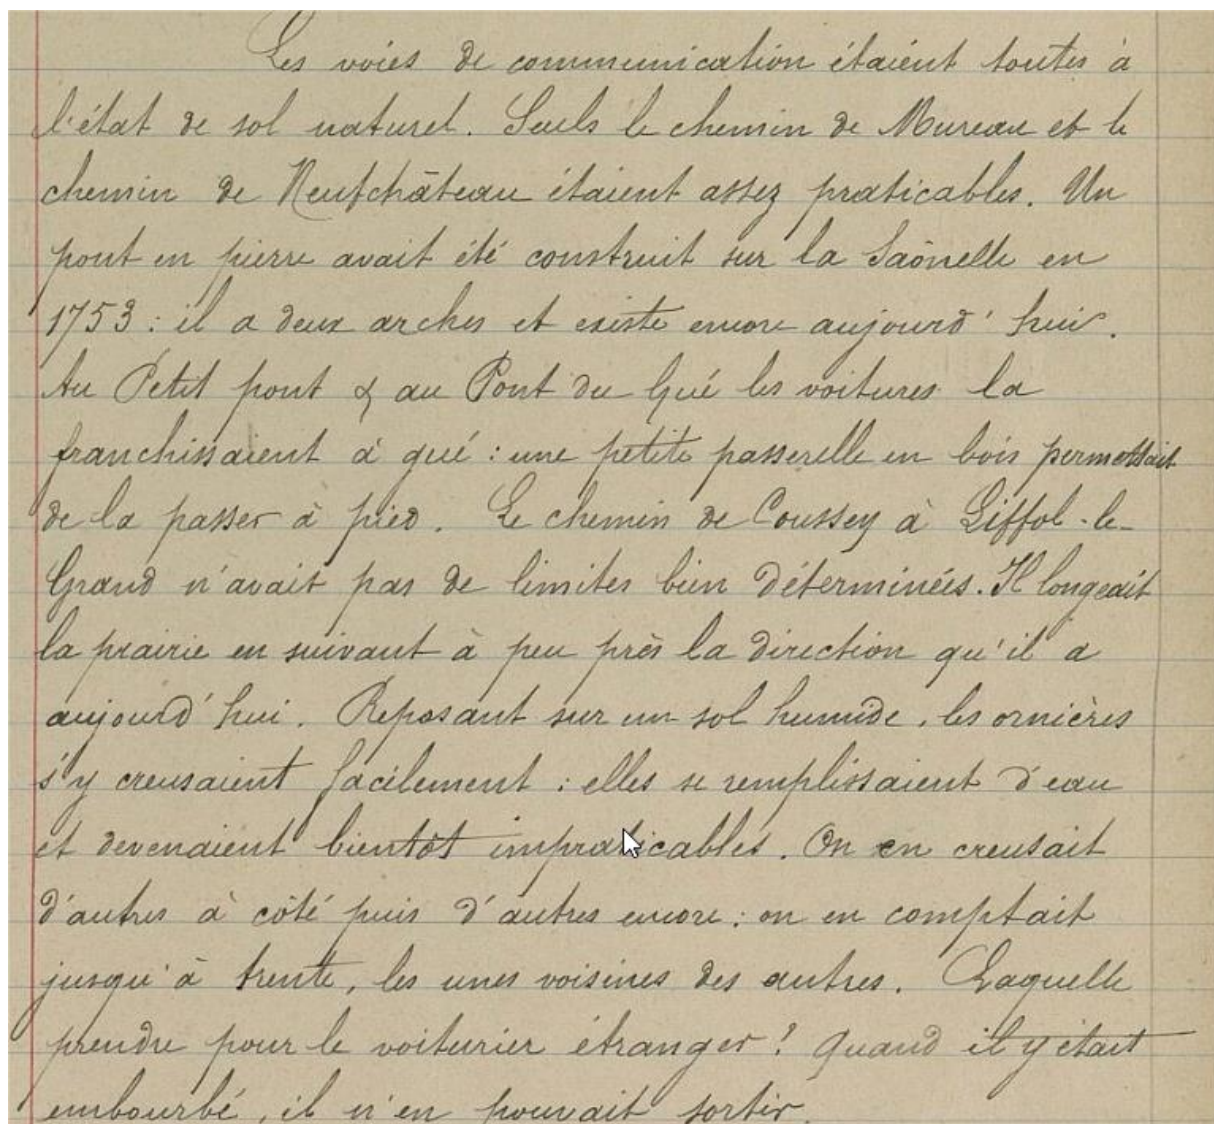 Les voies de communication étaient toutes à
l'état de sol naturel. Seuls le chemin de Mureau et le
chemin de Neufchâteau étaient assez praticables. Un
pont en pierre avait été construit sur la Saônelle en
1753 : il a deux arches et existe encore aujourd'hui.
Au Petit pont & au Pont du Gué les voitures la
franchissaient à gué : une petite passerelle en bois permettait
de la passer à pied. Le chemin de Coussey à Liffol-le-
Grand n'avait pas de limites bien déterminées. Il longeait
la prairie en suivant à peu près la direction qu'il a
aujourd'hui. Reposant sur un sol humide, les ornières
s'y creusaient facilement : elles se remplissaient d'eau
et devenaient bientôt impraticables. On en creusait
d'autres à côté puis d'autres encore : on en comptait
jusqu'à trente, les unes voisines des autres. Laquelle
prendre pour le voiturier étranger ? Quand il y était
embourbé, il n'en pouvait sortir.